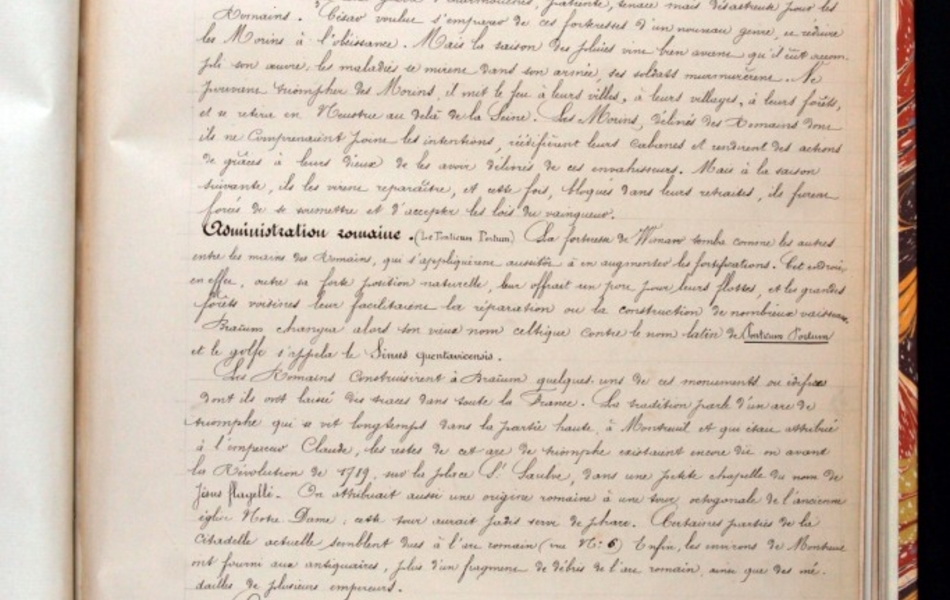 patiente, tenace mais désastreuse pour les
Romains. César voulut s'emparer de ces forteresses d'un nouveau genre, et réduire
les Morins à l'obéissance. Mais la saison des pluies vint bien avant qu'il eût accom-
pli son œuvre, les maladies se mirent dans son armée, ses soldats murmurèrent. Ne
pouvant triompher des Morins, il met le feu à leurs villes, à leurs villages, à leurs forêts,
et se retira en Neustrie au delà de la Seine. Les Morins, délivrés des Romains dont
ils ne comprenaient point les intentions, réédifièrent leurs cabanes et rendirent des actions
de grâces à leurs dieux de les avoir délivrés de ces envahisseurs. Mais à la saison
suivante, ils les virent reparaître, et cette fois, bloqués dans leurs retraites, ils furent
forcés de se soumettre et d'accepter les lois du vainqueur.
Administration romaine. (Le Ponticum Portum) La forteresse de Wimaw tomba comme les autres
entre les mains des Romains, qui s'appliquèrent aussitôt à en augmenter les fortifications. Cet endroit
en effet, outre sa forte position naturelle, leur offrait un port pour leurs flottes, et les grandes
forêts voisines leur facilitaient la réparation ou la construction de nombreux vaisseaux.
Braïum changea alors son vieux nom celtique contre le nom latin de Ponticum Portum
et le golfe s'appela le Sinus quentavicensis.
Les Romains construisirent à Braïum quelques-uns de ces monuments ou édifices
dont ils ont laissé des traces dans toute la France. La tradition parle d'un arc de
triomphe qui se vit longtemps dans la partie haute à Montreuil et qui était attribué
à l'empereur Claude, les restes de cet arc de triomphe existaient encore dit-on avant
la Révolution de 1789, sur la place St Saulve, dans une petite chapelle du nom de
Jésus flagellé. On attribuait aussi une origine romaine à une tour octogonale de l'ancienne
église Notre Dame, cette tour aurait jadis servi de phare. Certaines parties de la
citadelle actuelle semblent dues à l'art romain (vue No 6) Enfin, les environs de Montreuil
ont fourni aux antiquaires, plus d'un fragment de débris de l'art romain, ainsi que des mé-
dailles de plusieurs empereurs.